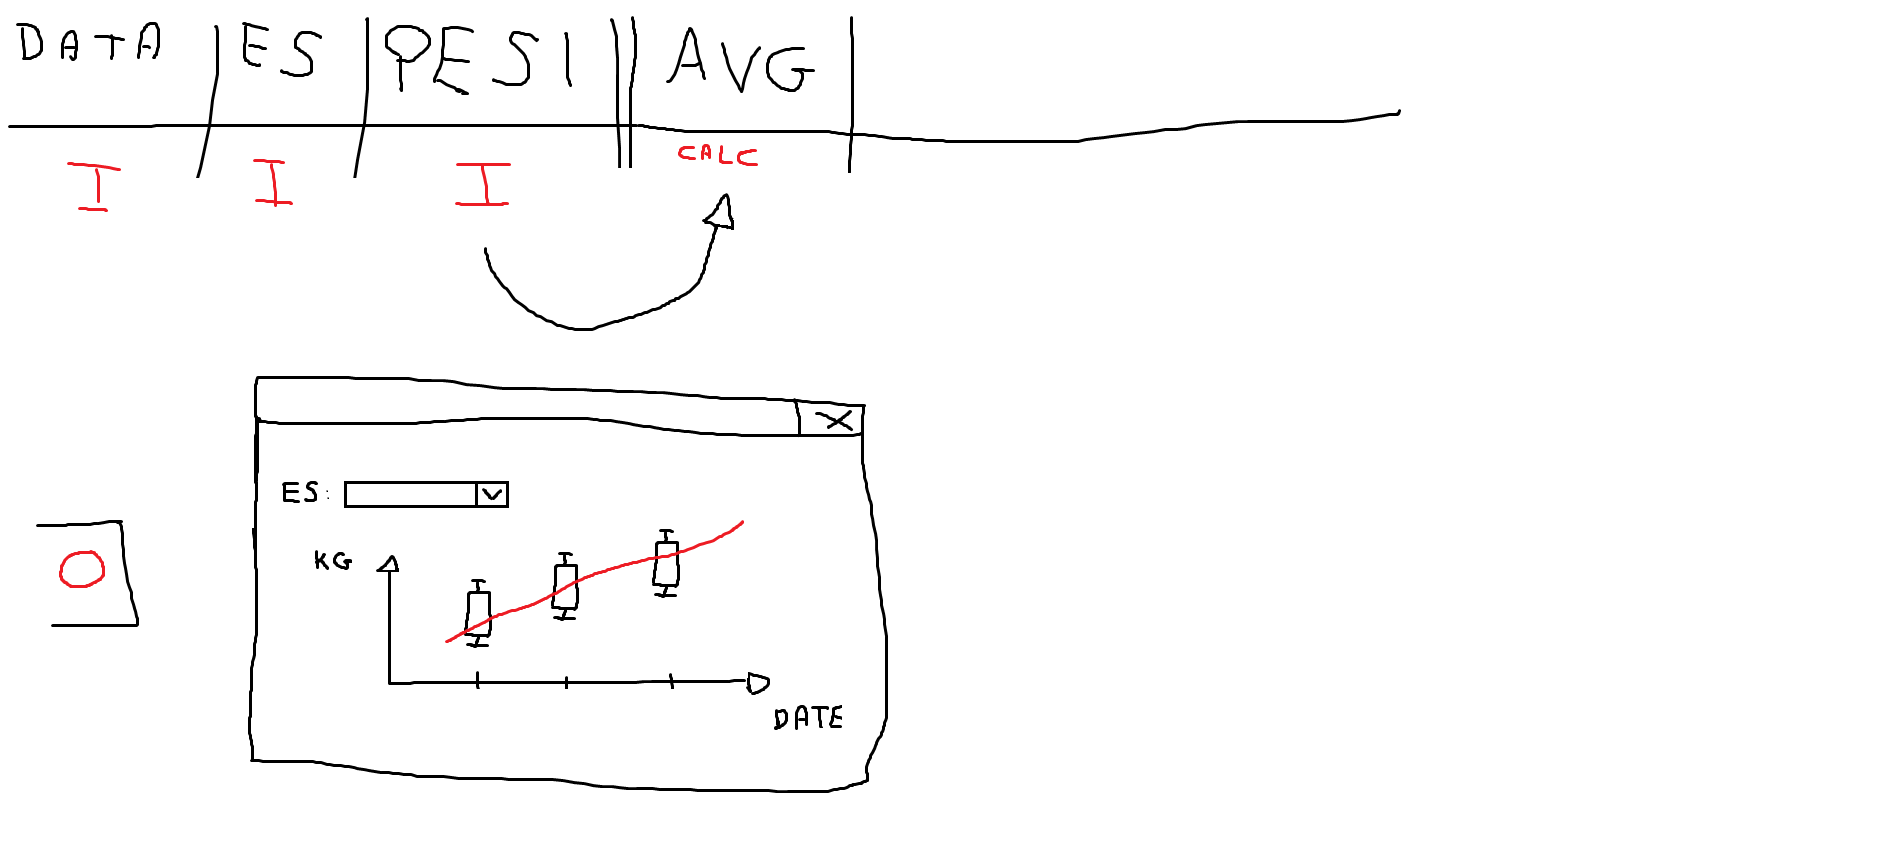 DATA ES PESI AVG
I I I CALC
X
ES:
KG
DATE